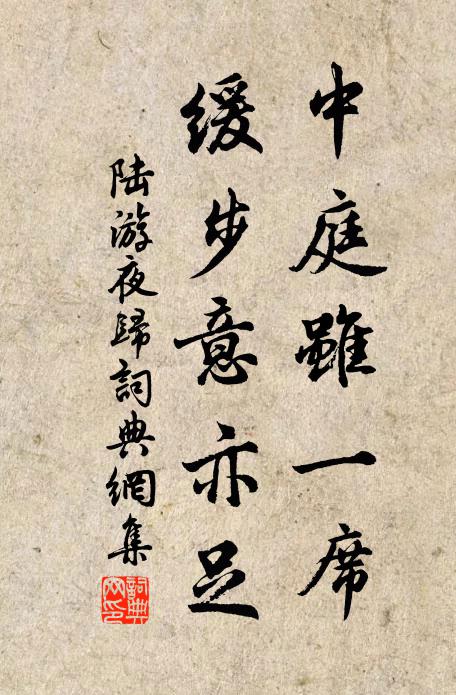 中庭雖一席
緩步意亦足
陸游夜歸詞典網集
詞典
网印